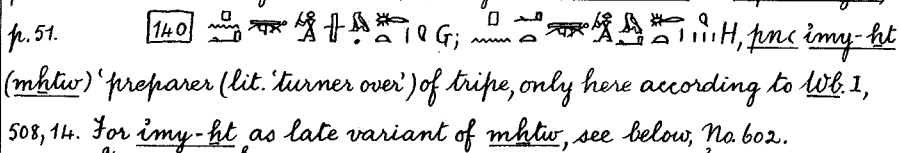 p. 51. 140 G; H, pnꜥ imy-ht
(mhtw) ‘preparer (lit. ‘turner over’) of tripe, only here according to Wb. I,
508, 14. For imy-ht as late variant of mhtw, see below, No. 602.